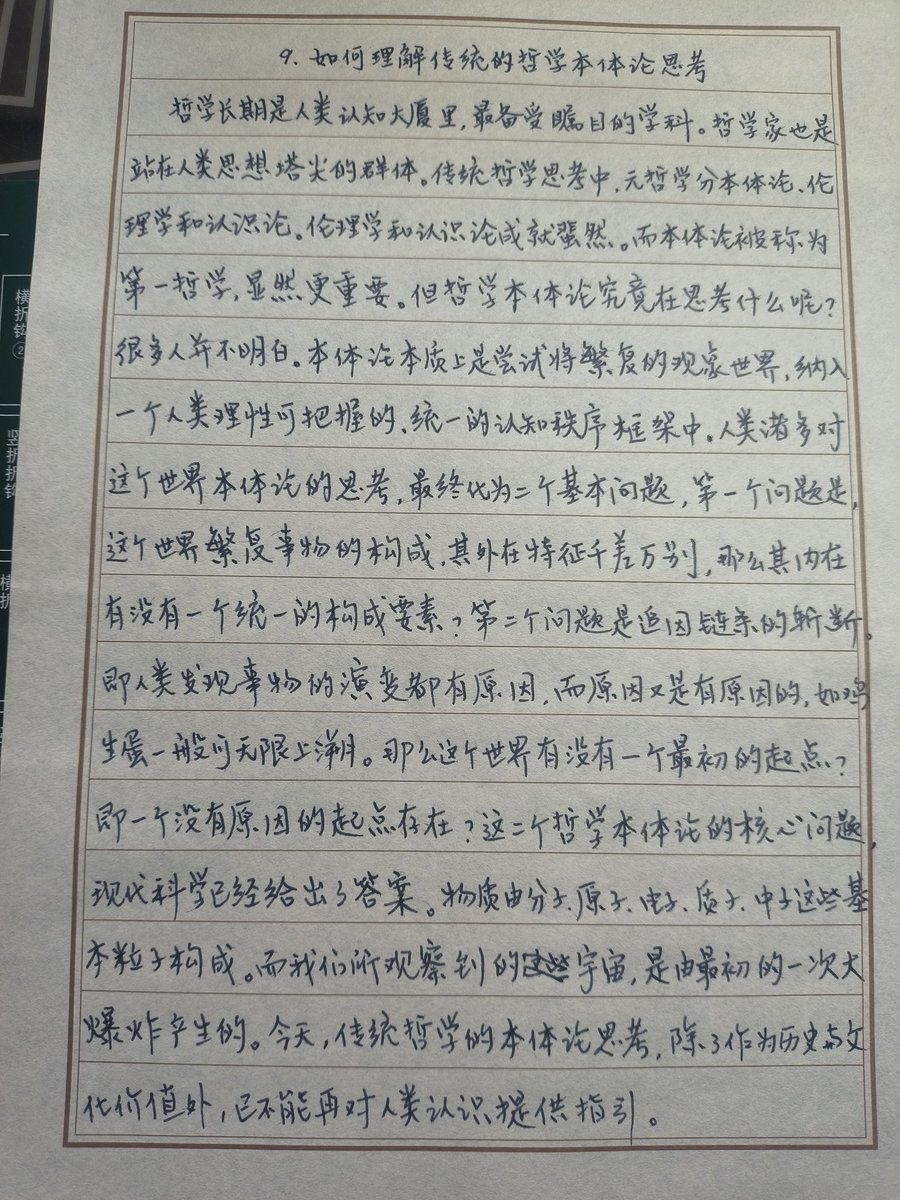 9. 如何理解传统的哲学本体论思考
哲学长期是人类认知大厦里,最备受瞩目的学科。哲学家也是
站在人类思想塔尖的群体。传统哲学思考中,元哲学分本体论、伦
理学和认识论。伦理学和认识论成就斐然。而本体论被称为
第一哲学,显然更重要。但哲学本体论究竟在思考什么呢?
很多人并不明白。本体论本质上是尝试将繁复的现象世界,纳入
一个人类理性可把握的、统一的认知秩序框架中。人类诸多对
这个世界本体论的思考,最终化为二个基本问题,第一个问题是,
这个世界繁复事物的构成,其外在特征千差万别,那么其内在
有没有一个统一的构成要素?第二个问题是追因链条的斩断。
即人类发现事物的演变都有原因,而原因又是有原因的,如鸡
生蛋一般可无限上溯。那么这个世界有没有一个最初的起点?
即一个没有原因的起点存在?这二个哲学本体论的核心问题,
现代科学已经给出了答案。物质由分子、原子、电子、质子、中子这些基
本粒子构成。而我们所观察到的宇宙,是由最初的一次大
爆炸产生的。今天,传统哲学的本体论思考,除了作为历史与文
化价值外,已不能再对人类认识提供指引。
横折钩②
竖折折钩
横折